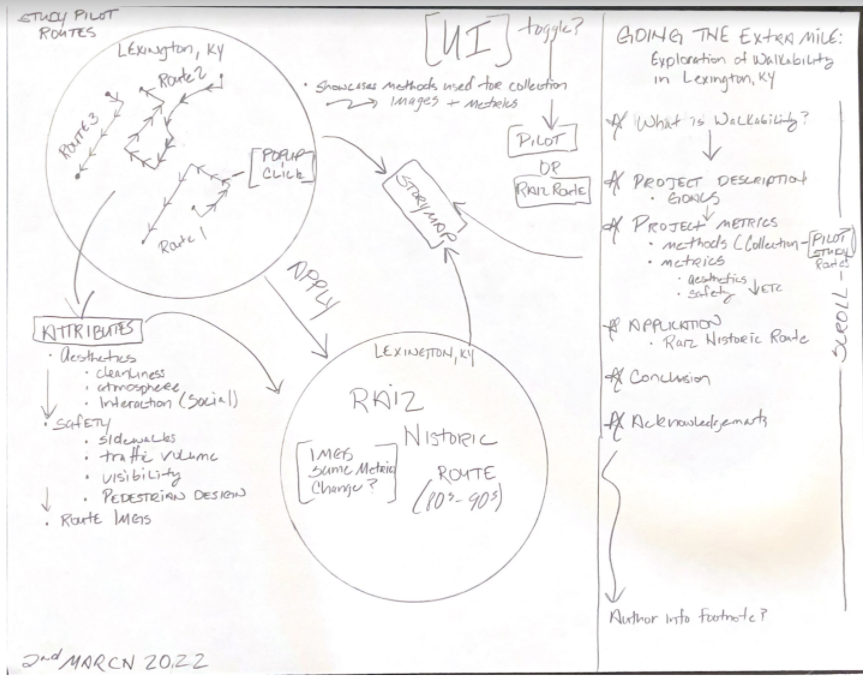 STUDY PILOT
ROUTES
LEXINGTON, KY
Route 2
ROUTE 3
POPUP
CLICK
Route 1
[UI] toggle?
• Showcases methods used for collection
Images + Metrics
PILOT
OR
RAIZ Route
STORYMAP
APPLY
ATTRIBUTES
• Aesthetics
• cleanliness
• atmosphere
• Interaction (Social)
• SAFETY
• sidewalks
• traffic volume
• visibility
• PEDESTRIAN DESIGN
• Route IMGS
LEXINGTON, KY
RAIZ
HISTORIC
ROUTE
(80s-90s)
IMGS
Same Metric
Change?
2nd MARCH 2022
GOING THE EXTRA MILE:
Exploration of Walkability
in Lexington, KY
What is Walkability?
PROJECT DESCRIPTION
• GOALS
PROJECT METRICS
• methods (Collection - PILOT
STUDY
Routes
• metrics
• aesthetics
• safety ETC
APPLICATION
• Raiz Historic Route
Conclusion
Acknowledgements
SCROLL
Author Info footnote?